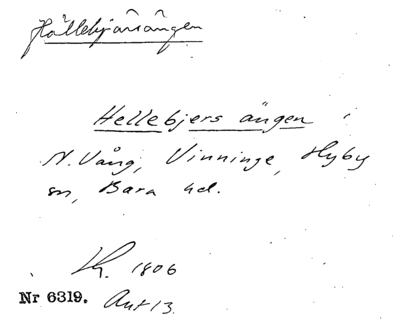 Hällebjärsängen
Hellebjers ängen i
N. Vång, Vinninge, Hyby
sn, Bara hd.
Kh. 1806
Nr 6319. Akt 13.